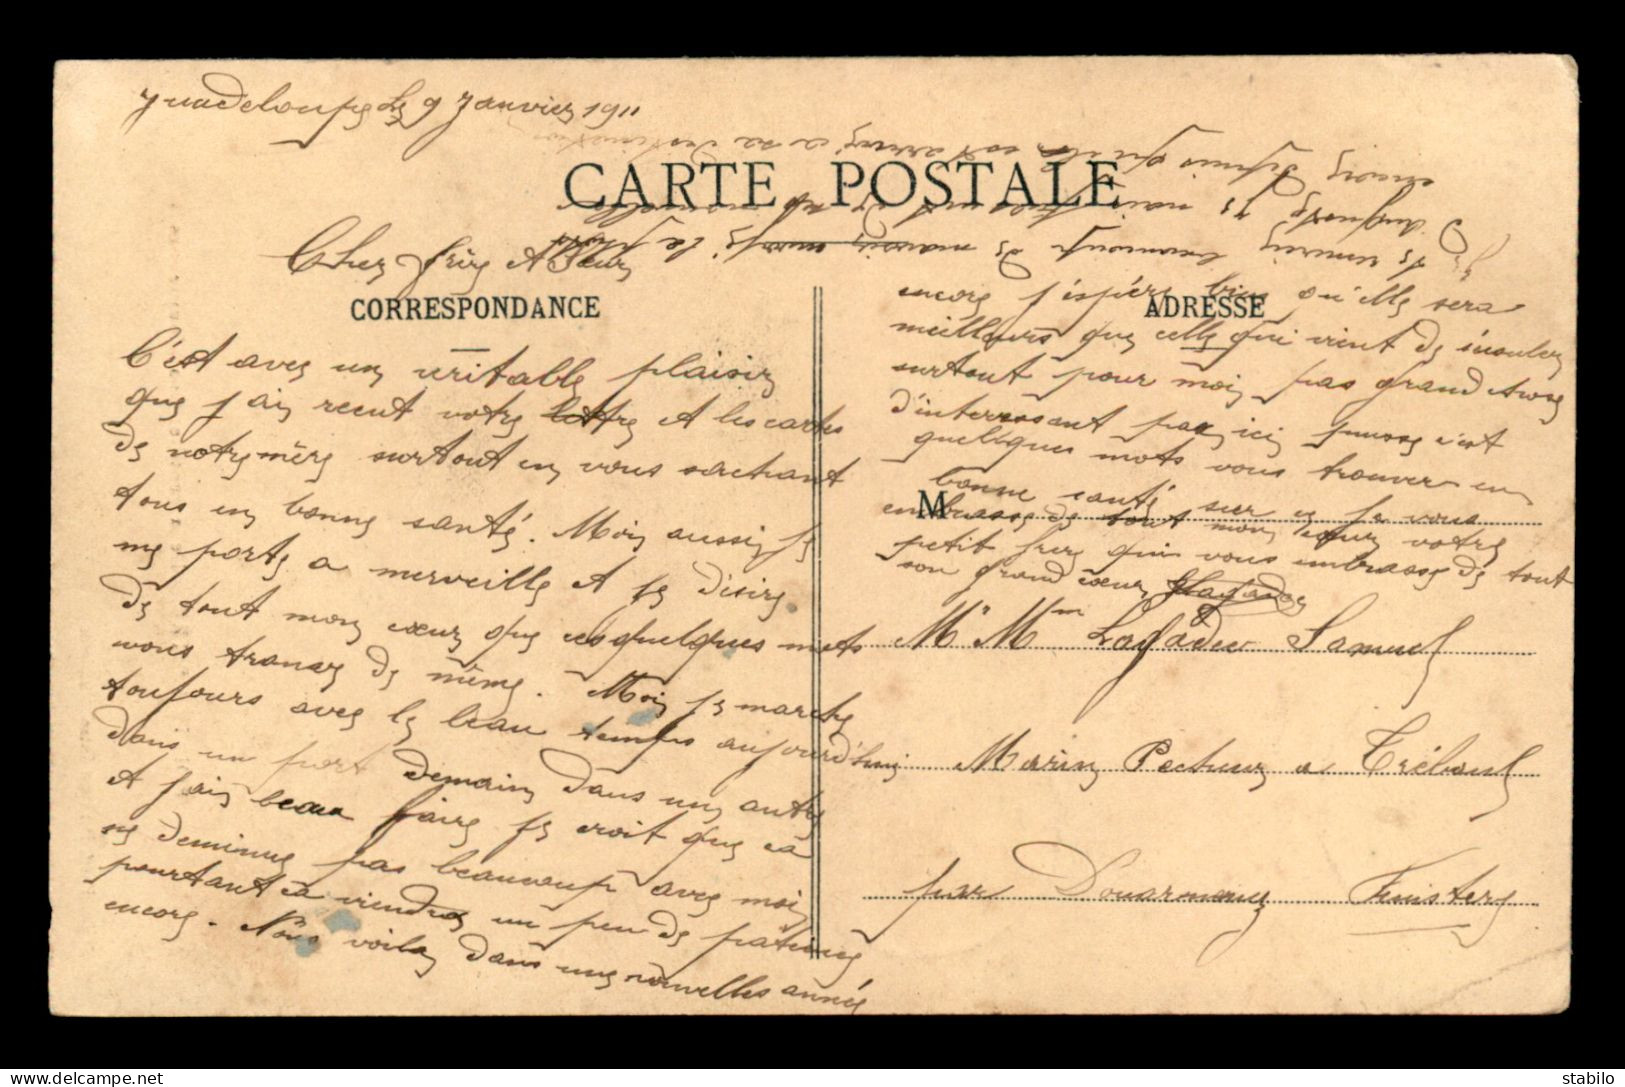 Guadeloupe Le 9 Janvier 1911
CARTE POSTALE
Cher frère et Sœur
CORRESPONDANCE
C'est avec un véritable plaisir
que j'ai recut votre lettre et les cartes
de notre mère surtout en vous sachant
tous en bonne santé. Moi aussi je
me porte a merveille et je désire
de tout mon cœur que ces quelques mots
vous trouve de même. Moi je marche
toujours avec le beau temps aujourd'hui
dans un port demain dans un autre
et j'ai beau faire je croit que ca
ne deminue pas beaucoup avec moi
pourtant ca viendra un peu de patience
encore. Nous voila dans une nouvelle année
ADRESSE
encore j'espère bien qu'elle sera
meilleure que celle qui vient de s'éculer
surtout pour moi pas grand chose
d'interressant par ici puisse c'est
quelques mots vous trouver en
bonne santé sur ce je vous
embrasse de tout mon cœur votre
petit frere qui vous embrasse de tout
son grand cœur Lagadec
M
Mr Mme Lagadec Samuel
Marin Pecheur a Tréboul
par Douarnenez Finistere
de nouvelle
encore depuis qu'il est arrivé a sa destination
stabilo